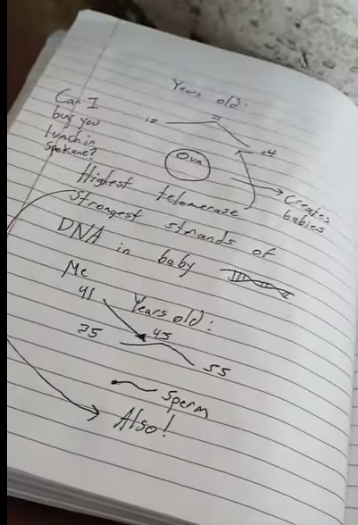 Years old:
Can I
buy you
lunch in
Spokane?
Ova
Creates
babies
Highest telomerase
Strongest strands of
DNA in baby
Me
41
Years old:
35 45
55
Sperm
Also!